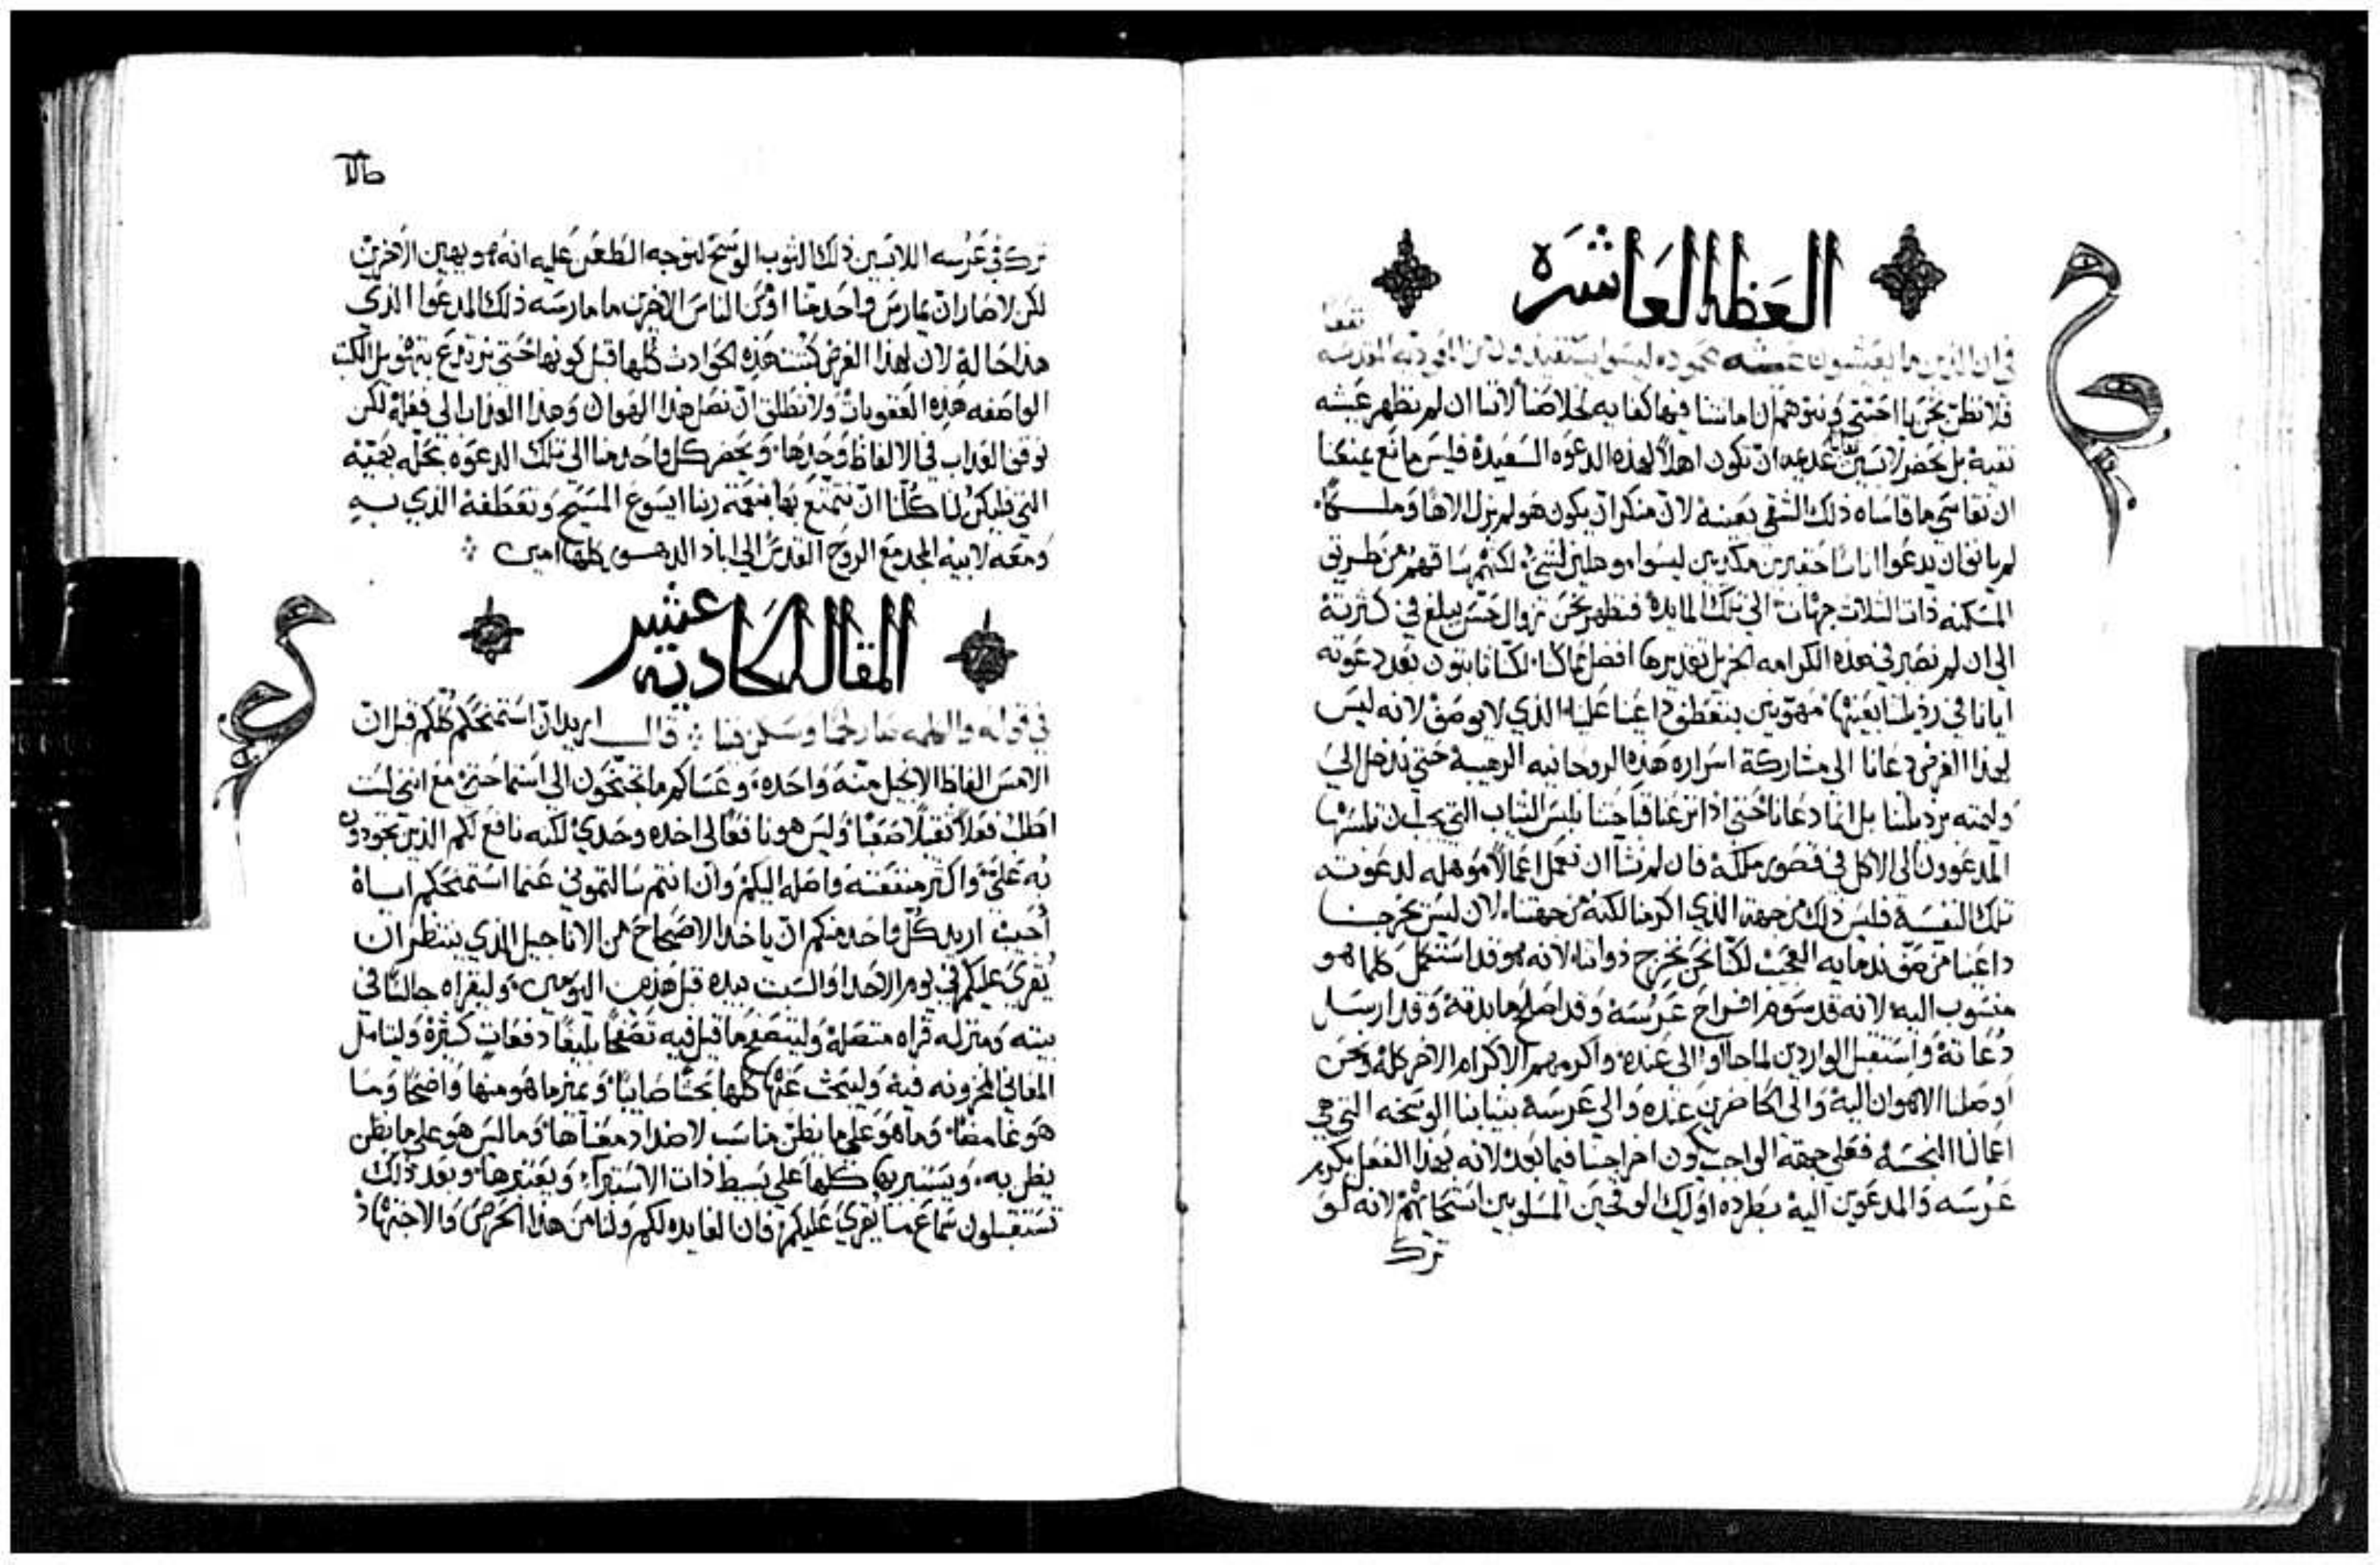 العظة العاشره
في ان الذين ما يعيشون عيشه محموده ليسوا يستفيدون من الموديه المقدسه نفعا
فلا نظن نحن يا احبتي ونتوهم ان اماننا فيها كفايه لخلاصنا لاننا ان لم نظهر عيشه
نقية بل نحضر لابسين ثيابا عديمه ان تكون اهلاً لهذه الدعوه السعيدة فليس مانع يمنعنا
ان نقاسي ما قاساه ذلك الشقي بعينة لان منكرا ان يكون هو لم يزل الاها وملكا
لم يانف ان يدعوا اناسا حقيرين مكديين ليسوا موهلين لشيء لكنهم ساقهم من طريق
المسكنه ذات الثلاث جهات الي تلك المايدة فنظهر نحن زوال حس يبلغ في كثرته
الي ان لم نصير في هذه الكرامه الجزيل تقديرها افضل مما كنا لكنا ثابتون بعد دعوته
ايانا في رذيلتنا بعينها مهوبين بتعطف داعينا علينا الذي لا يوصف لانه ليس
لهذا الغرض دعانا الي مشاركة اسراره هذه الروحانيه الرهيبة حتي ندخل الي
وليمته برذيلتنا بل انما دعانا حتي اذا نزعنا قباحتنا نلبس الثياب التي يجب ان تلبسها
المدعوون الي الاكل في قصور ملكة فان لم نشا ان نعمل اعمالاً موهله لدعوته
تلك النفسة فليس ذلك من جهة الذي اكرمنا لكنه من جهتنا لان ليس يخرجنا
داعينا من صف ندمايه العجيب لكنا نحن نخرج ذواتنا لانه هو قد استكمل كلما هو
منسوب اليه لانه قد سوم افراح عرسه وقد اصلح مايدته وقد ارسل
دعاته واستقبل الواردين لما جاوا الي عنده واكرمهم الاكرام الاخر كله ونحن
اوصلنا الاهوان الية والي الحاضرين عنده والي عرسه بثيابنا الوسخه التي هي
اعمالنا النجسه فعلي جهة الواجب يكون اخراجنا فيما بعد لانه بهذا الفعل يكرم
عرسه والمدعوين اليه بطرده اوليك الوقحين المسلوبين استحاتهم لانه لو
ترك
ترك في عرسه اللابسين ذلك الثوب الوسخ لتوجه الطعن عليه انه هو يهين الاخرين
لكن لا صار ان يمارس واحد منا او من الناس الاخرين ما مارسه ذلك المدعوا الذي
هذا حاله لان لهذا الغرض كتبت هذه الحوادث كلها قبل كونها حتي نرتدع بتهويل الكتب
الواصفه هذه العقوبات ولا نطلق ان نصل هذا الهوان وهذا العذاب الي فعله لكن
نوقف العذاب في الالفاظ وحدها ويحضر كل واحد منا الي تلك الدعوه بحله بهيه
التي فليكن لنا كلنا ان نتمتع بها بنعمة ربنا ايسوع المسيح وتعطفه الذي به
ومعه لابيه المجد مع الروح القدس الي اباد الدهور كلها امين
المقاله الحاديه عشر
في قوله والكلمه صار لحما وسكن فينا قال اريد ان استمنحكم كلكم قبل ان
الامس الفاظ الانجيل منة واحده وعساكم ما تجنحون الي استماحتي مع انني لست
اطلب فعلاً ثقيلاً صعبا وليس هو نافعا لي اخذه وحدي لكنه نافع لكم الذين تجودون
به علي واكثر منفعته واصله اليكم وان انتم سالتموني عما استمنحكم اياه
اجبت اريد كل واحد منكم ان ياخذ الاصحاح من الاناجيل الذي ينتظر ان
يقري عليكم في يوم الاحد او السبت بيده قبل هذين اليومين وليقراه جالسا في
بيته ومنزله قراه متصلة وليتصفح ما قيل فيه تصفحا بليغا دفعات كثيرة وليتامل
المعاني المخزونه فيه وليبحث عنها كلها بحثا صايبا ويميز ما هو منها واضحا وما
هو غامضا وما هو علي ما يظن مناسب لاضداد معناها وما ليس هو علي ما يظن
يظن به ويستبريها كلها علي بسيط ذات الاستبرآء ويعتبرها وبعد ذلك
تستقبلون سماع ما يقري عليكم فان الفايده لكم ولنا من هذا الحرص والاجتهاد